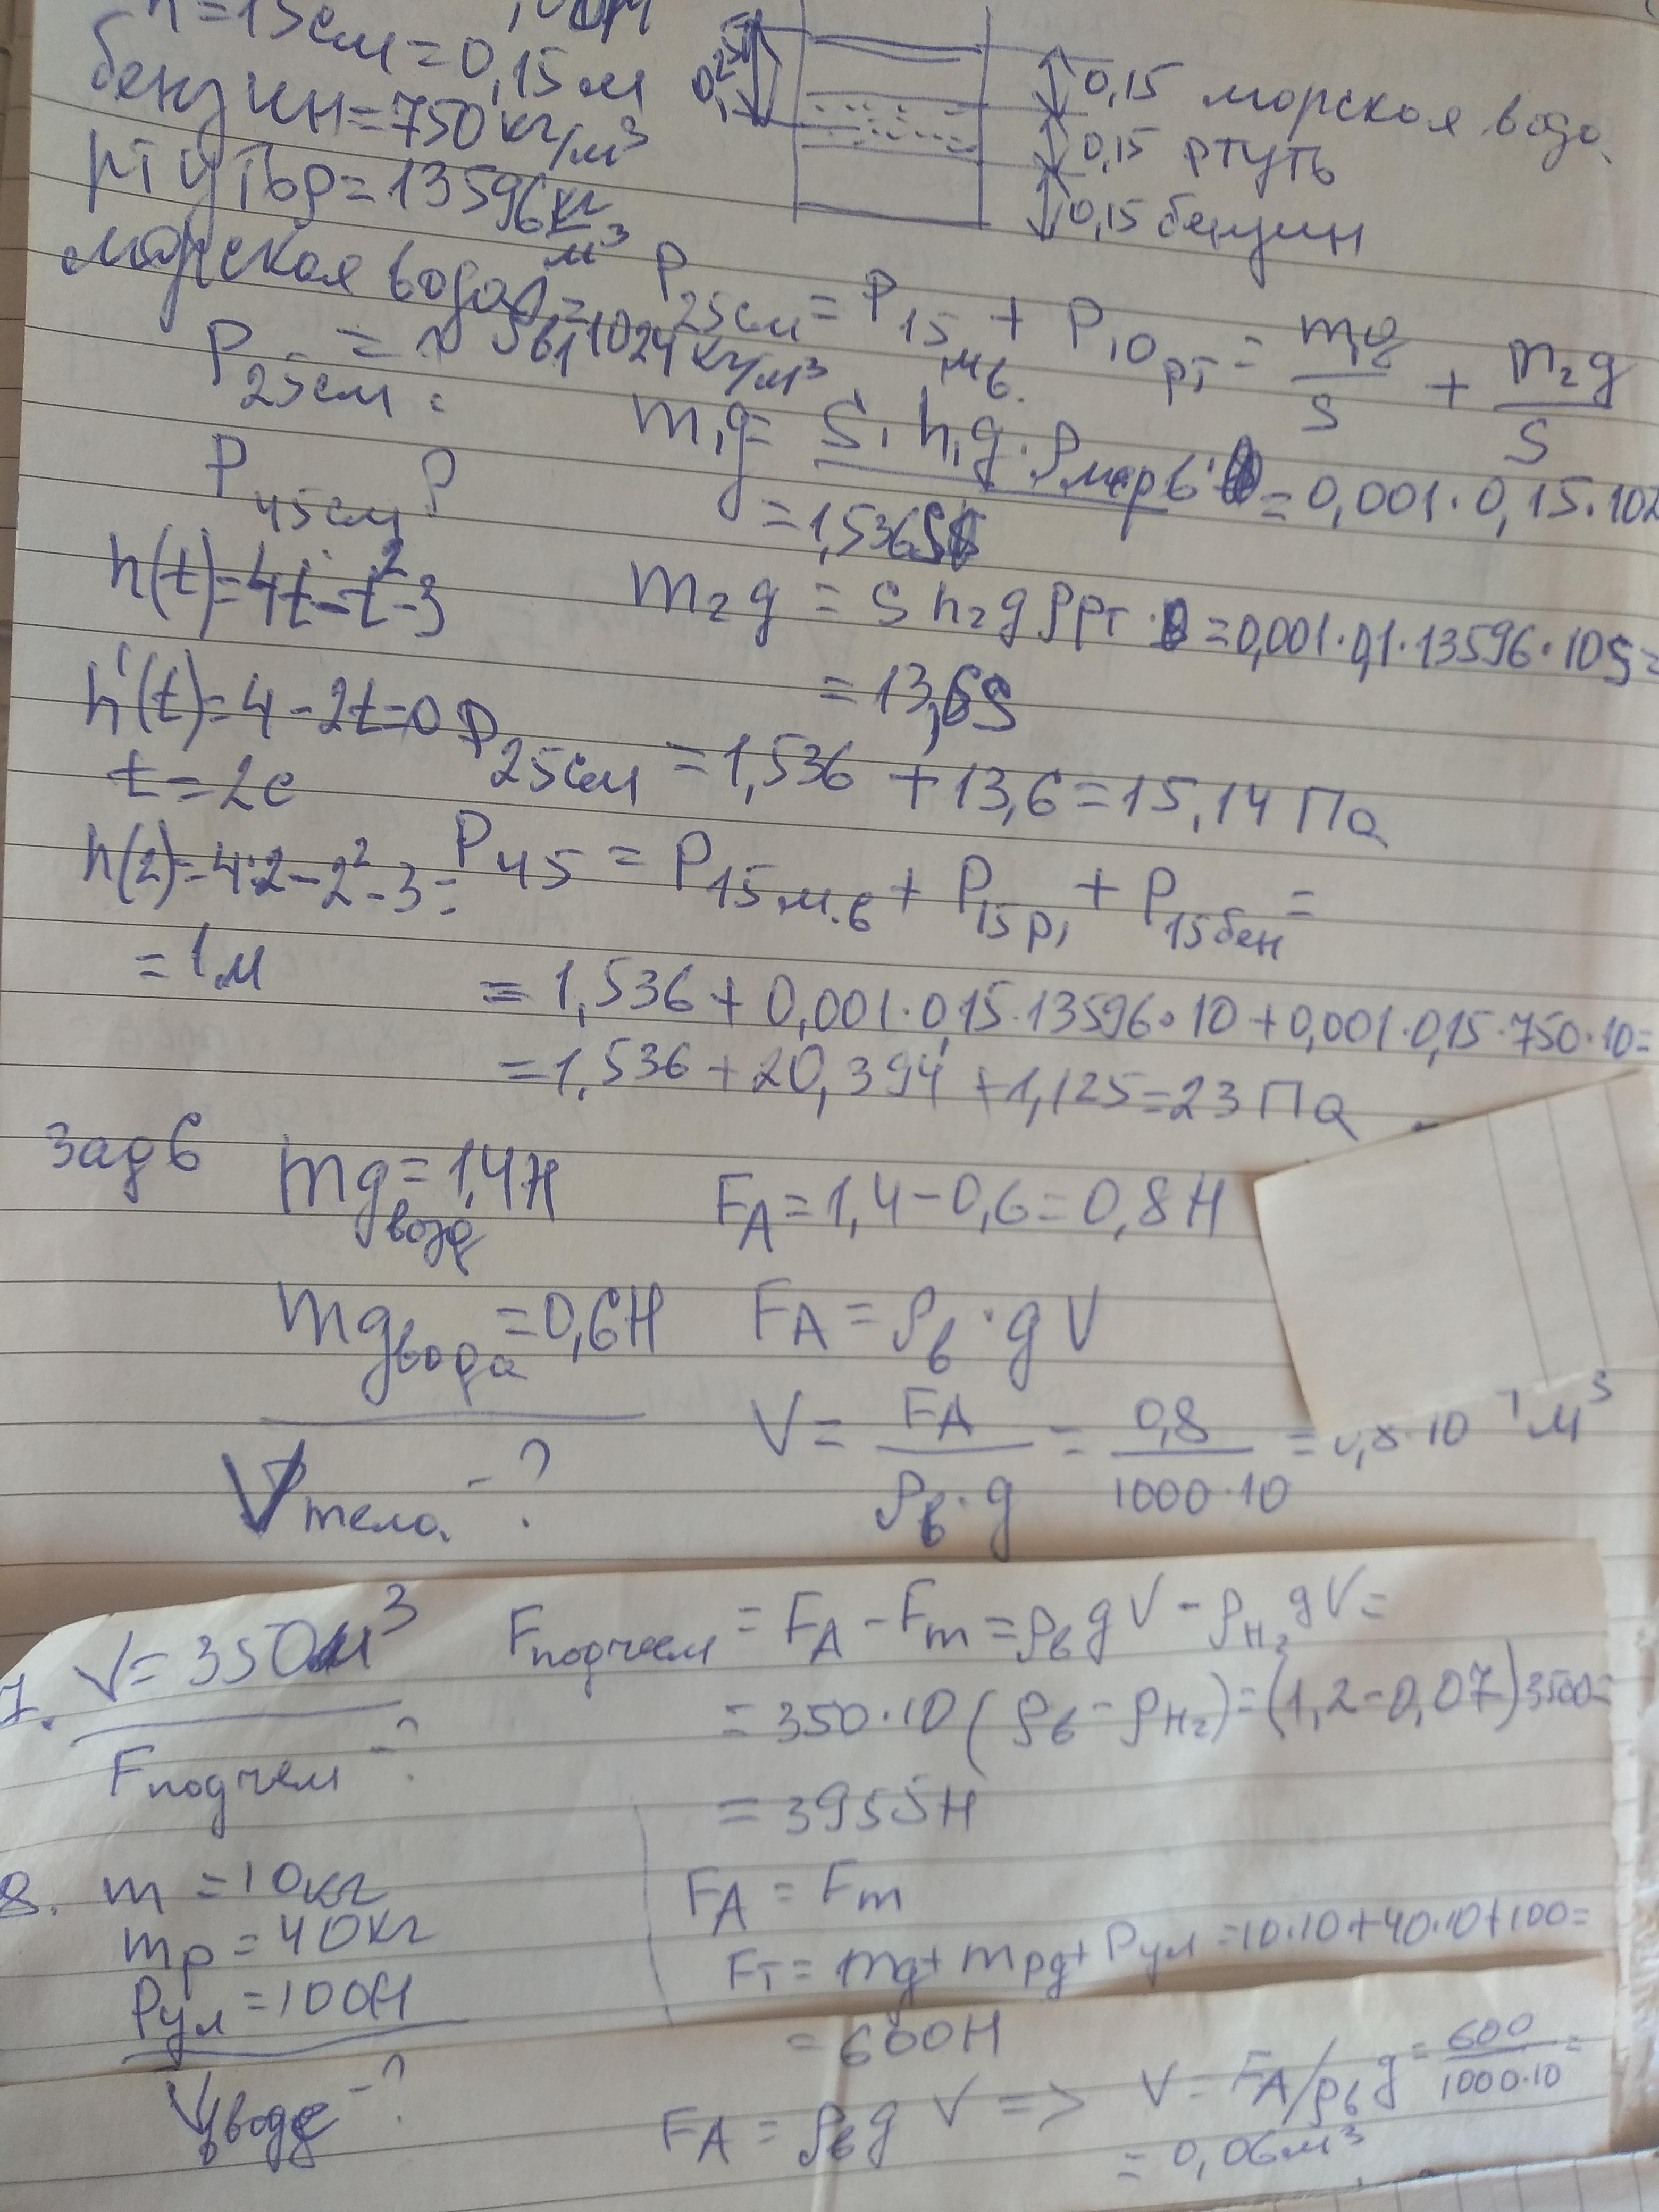 h=15см=0,15м
бензин=750кг/м³
ртутьρ=13596кг/м³
морская вода ρ=1024кг/м³
0,25
0,15 морская вода
0,15 ртуть
0,15 бензин
P25см =
P25см = P15м.в. + P10рт = m₁g/S + m₂g/S
P45см ?
m₁g = S·h₁g·ρмор в = 0,001·0,15·102
= 1,536S
h(t)=4t-t²-3
m₂g = Sh₂gρрт = 0,001·0,1·13596·10S=
= 13,6S
h'(t)=4-2t=0
t=2с
P25см = 1,536 + 13,6 = 15,14 Па
h(2)=4·2-2²-3=
=1м
P45 = P15м.в + P15рт + P15бен =
= 1,536+0,001·0,15·13596·10+0,001·0,15·750·10=
=1,536+20,394+1,125=23 Па
Зад 6
mgвозд=1,4Н
FA=1,4-0,6=0,8Н
mgвода=0,6Н
FA = ρв·gV
Vтела - ?
V = FA/ρв·g = 0,8/1000·10 = 0,8·10 м³
7. V=350м³
Fподъем - ?
Fподъем = FA - Fт = ρвgV - ρH₂gV=
= 350·10(ρв-ρH₂)=(1,2-0,07)3500=
= 3955Н
8. m = 10кг
mр = 40кг
Pул = 100Н
Vв воде - ?
FA = Fт
Fт = mg+mрg+Pул=10·10+40·10+100=
= 600Н
FA = ρвgV => V = FA/ρвg = 600/1000·10 =
= 0,06м³